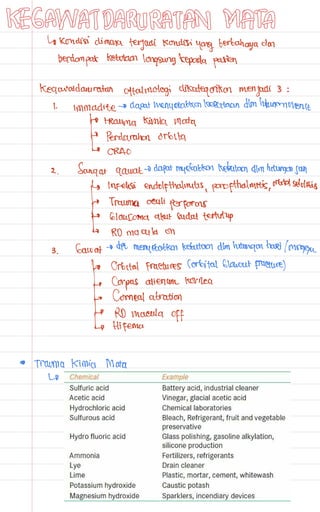 KEGAWATDARURATAN MATA
Kondisi dimana terjadi kondisi yang berbahaya dan
berdampak kebutaan langsung kepada pasien
Kegawatdaruratan oftalmologi dikategorikan menjadi 3 :
1. Immadite → dapat menyebabkan kebutaan dlm
trauma kimia mata
Perdarahan orbita
CRAO
2. Sangat gawat → dapat kebutaan dlm hitungan jam
Infeksi
Trauma oculi perforans
Glaucoma akut sudut tertutup
RD macula on
3. Gawat → dpt menyebabkan kebutaan dlm hitungan hari / minggu
Orbital Fractures (orbital blowout fracture)
Corpus alienum kornea
Corneal abration
RD macula off
Hifema
• Trauma Kimia Mata
Chemical Example
Sulfuric acid Battery acid, industrial cleaner
Acetic acid Vinegar, glacial acetic acid
Hydrochloric acid Chemical laboratories
Sulfurous acid Bleach, Refrigerant, fruit and vegetable
preservative
Hydro fluoric acid Glass polishing, gasoline alkylation,
silicone production
Ammonia Fertilizers, refrigerants
Lye Drain cleaner
Lime Plastic, mortar, cement, whitewash
Potassium hydroxide Caustic potash
Magnesium hydroxide Sparklers, incendiary devices